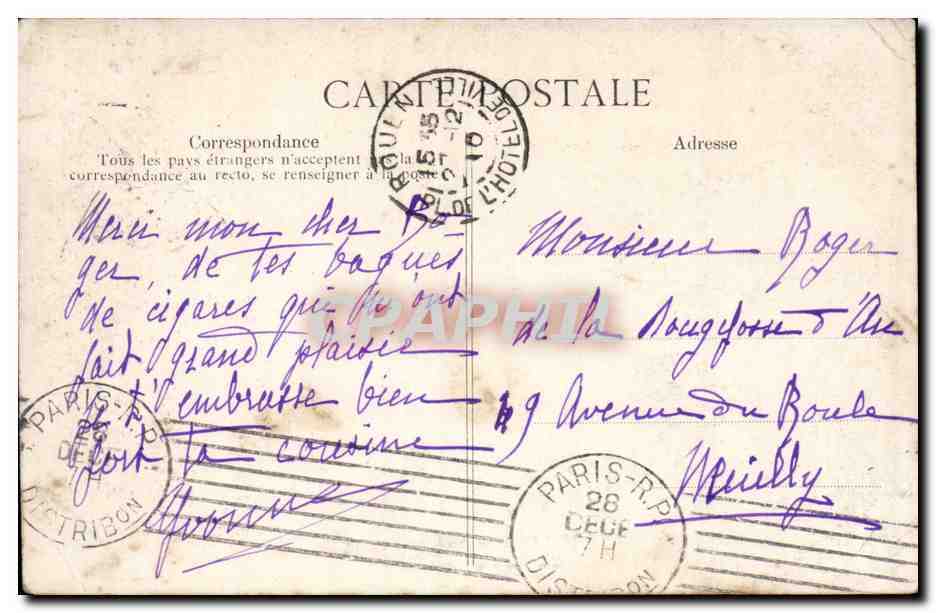 CARTE POSTALE
Correspondance
Tous les pays étrangers n'acceptent pas la
correspondance au recto, se renseigner à la poste
Adresse
ROUEN PL. DE L'HOTEL DE VILLE
15 35
27 - 12
10
Merci mon cher Ro-
ger, de tes bagues
de cigares qui m'ont
fait grand plaisir
t'embrasse bien
fort ta cousine
Yvonne
Monsieur Roger
de la Bougefosse d'An
49 Avenue du Roule
Neuilly
PARIS-R.P.
DISTRIBON
PARIS-R.P.
28
DECE
7H
DISTRIBON
CPAPHIL